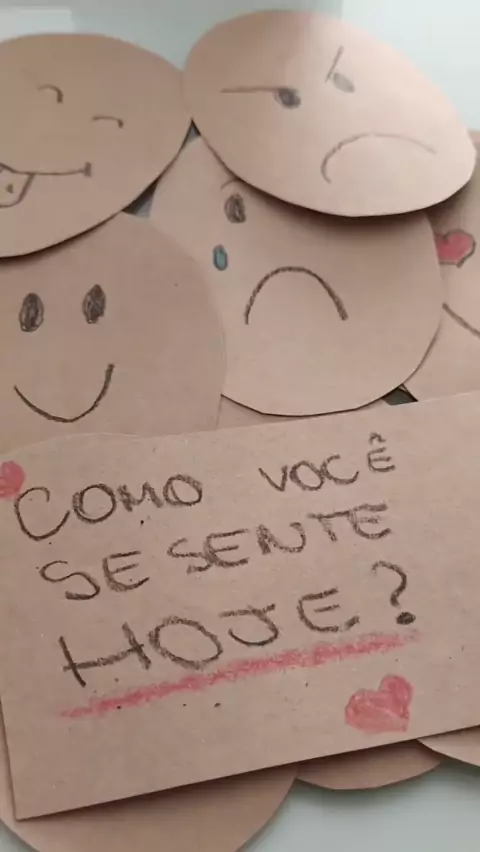 COMO VOCÊ
SE SENTE
HOJE?